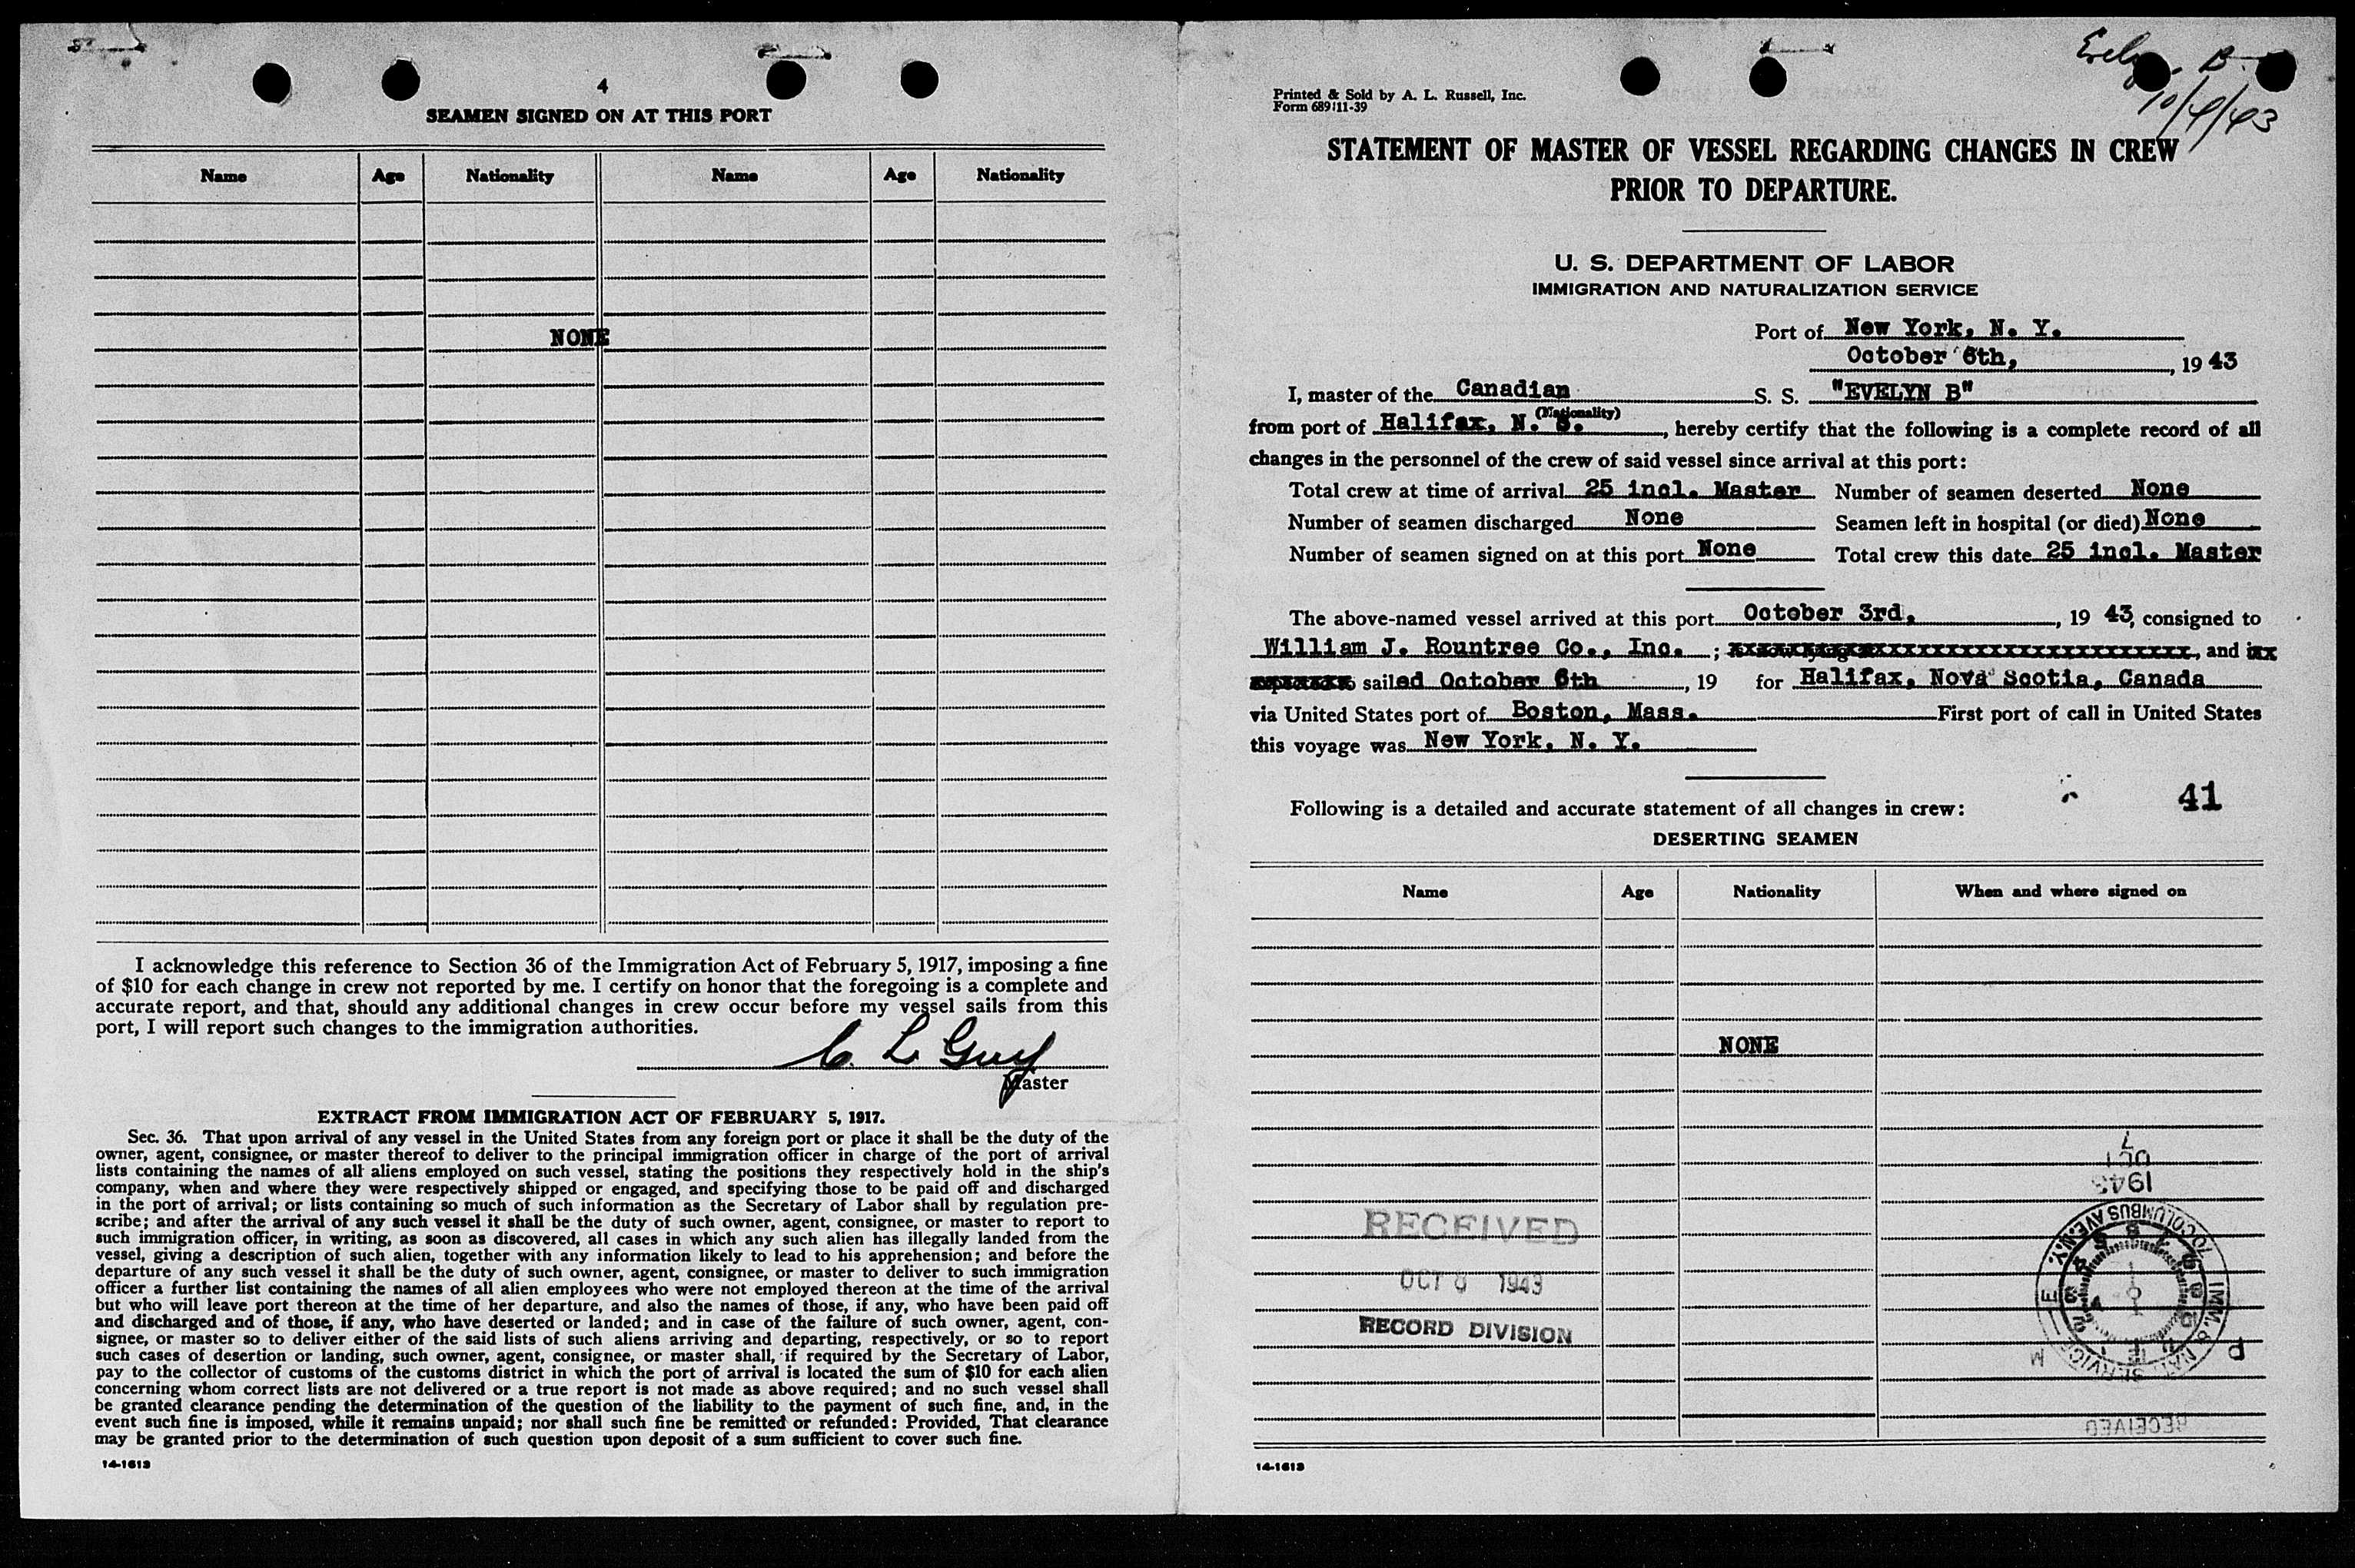 4
SEAMEN SIGNED ON AT THIS PORT
Name Age Nationality Name Age Nationality
NONE
I acknowledge this reference to Section 36 of the Immigration Act of February 5, 1917, imposing a fine
of $10 for each change in crew not reported by me. I certify on honor that the foregoing is a complete and
accurate report, and that, should any additional changes in crew occur before my vessel sails from this
port, I will report such changes to the immigration authorities.
C. L. Guy
Master
EXTRACT FROM IMMIGRATION ACT OF FEBRUARY 5, 1917.
Sec. 36. That upon arrival of any vessel in the United States from any foreign port or place it shall be the duty of the
owner, agent, consignee, or master thereof to deliver to the principal immigration officer in charge of the port of arrival
lists containing the names of all aliens employed on such vessel, stating the positions they respectively hold in the ship's
company, when and where they were respectively shipped or engaged, and specifying those to be paid off and discharged
in the port of arrival; or lists containing so much of such information as the Secretary of Labor shall by regulation pre-
scribe; and after the arrival of any such vessel it shall be the duty of such owner, agent, consignee, or master to report to
such immigration officer, in writing, as soon as discovered, all cases in which any such alien has illegally landed from the
vessel, giving a description of such alien, together with any information likely to lead to his apprehension; and before the
departure of any such vessel it shall be the duty of such owner, agent, consignee, or master to deliver to such immigration
officer a further list containing the names of all alien employees who were not employed thereon at the time of the arrival
but who will leave port thereon at the time of her departure, and also the names of those, if any, who have been paid off
and discharged and of those, if any, who have deserted or landed; and in case of the failure of such owner, agent, con-
signee, or master so to deliver either of the said lists of such aliens arriving and departing, respectively, or so to report
such cases of desertion or landing, such owner, agent, consignee, or master shall, if required by the Secretary of Labor,
pay to the collector of customs of the customs district in which the port of arrival is located the sum of $10 for each alien
concerning whom correct lists are not delivered or a true report is not made as above required; and no such vessel shall
be granted clearance pending the determination of the question of the liability to the payment of such fine, and, in the
event such fine is imposed, while it remains unpaid; nor shall such fine be remitted or refunded: Provided, That clearance
may be granted prior to the determination of such question upon deposit of a sum sufficient to cover such fine.
14-1613
B.
10/4/43
Printed & Sold by A. L. Russell, Inc.
Form 689 11-39
STATEMENT OF MASTER OF VESSEL REGARDING CHANGES IN CREW
PRIOR TO DEPARTURE.
U. S. DEPARTMENT OF LABOR
IMMIGRATION AND NATURALIZATION SERVICE
Port of New York, N. Y.
October 6th, , 19 43
I, master of the Canadian S. S. "EVELYN B"
(Nationality)
from port of Halifax, N. S. , hereby certify that the following is a complete record of all
changes in the personnel of the crew of said vessel since arrival at this port:
Total crew at time of arrival 25 incl. Master Number of seamen deserted None
Number of seamen discharged None Seamen left in hospital (or died) None
Number of seamen signed on at this port None Total crew this date 25 incl. Master
The above-named vessel arrived at this port October 3rd, , 19 43, consigned to
William J. Rountree Co., Inc. ; , and
sailed October 6th , 19 for Halifax, Nova Scotia, Canada
via United States port of Boston, Mass. First port of call in United States
this voyage was New York, N. Y.
Following is a detailed and accurate statement of all changes in crew:
41
DESERTING SEAMEN
Name Age Nationality When and where signed on
NONE
7
OCT
1943
70 COLUMBUS AVE. N.Y.
IMM. & NAT. SERVICE
RECEIVED
OCT 8 1943
RECORD DIVISION
RECEIVED
14-1613